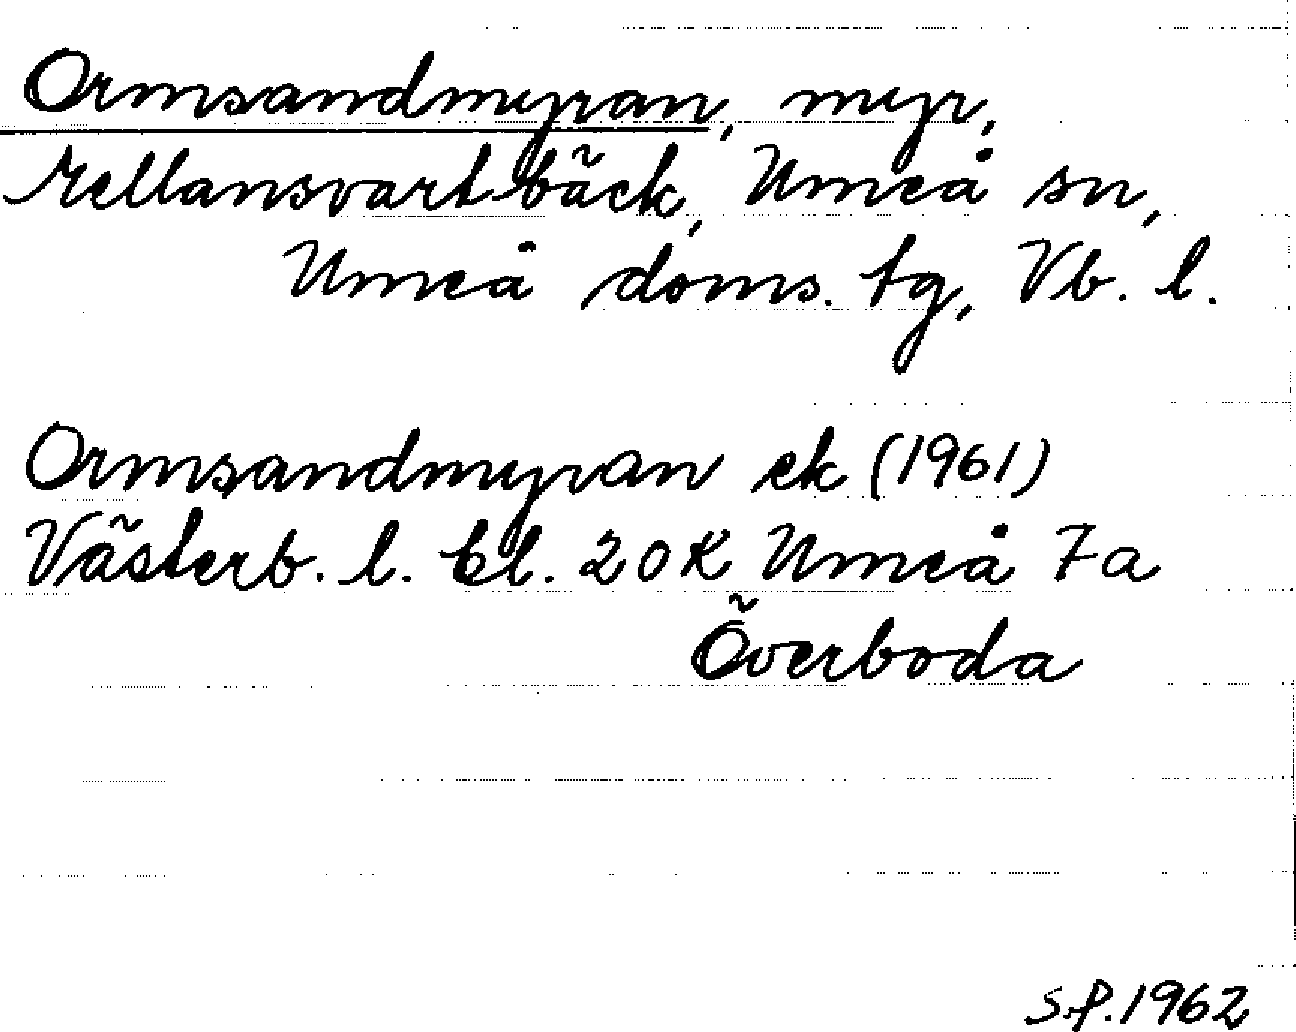 Ormsandmyran, myr,
Mellansvartbäck, Umeå sn,
Umeå doms. tg, Vb. l.
Ormsandmyran ek (1961)
Västerb. l. bl. 20K Umeå 7a
Överboda
S.P. 1962